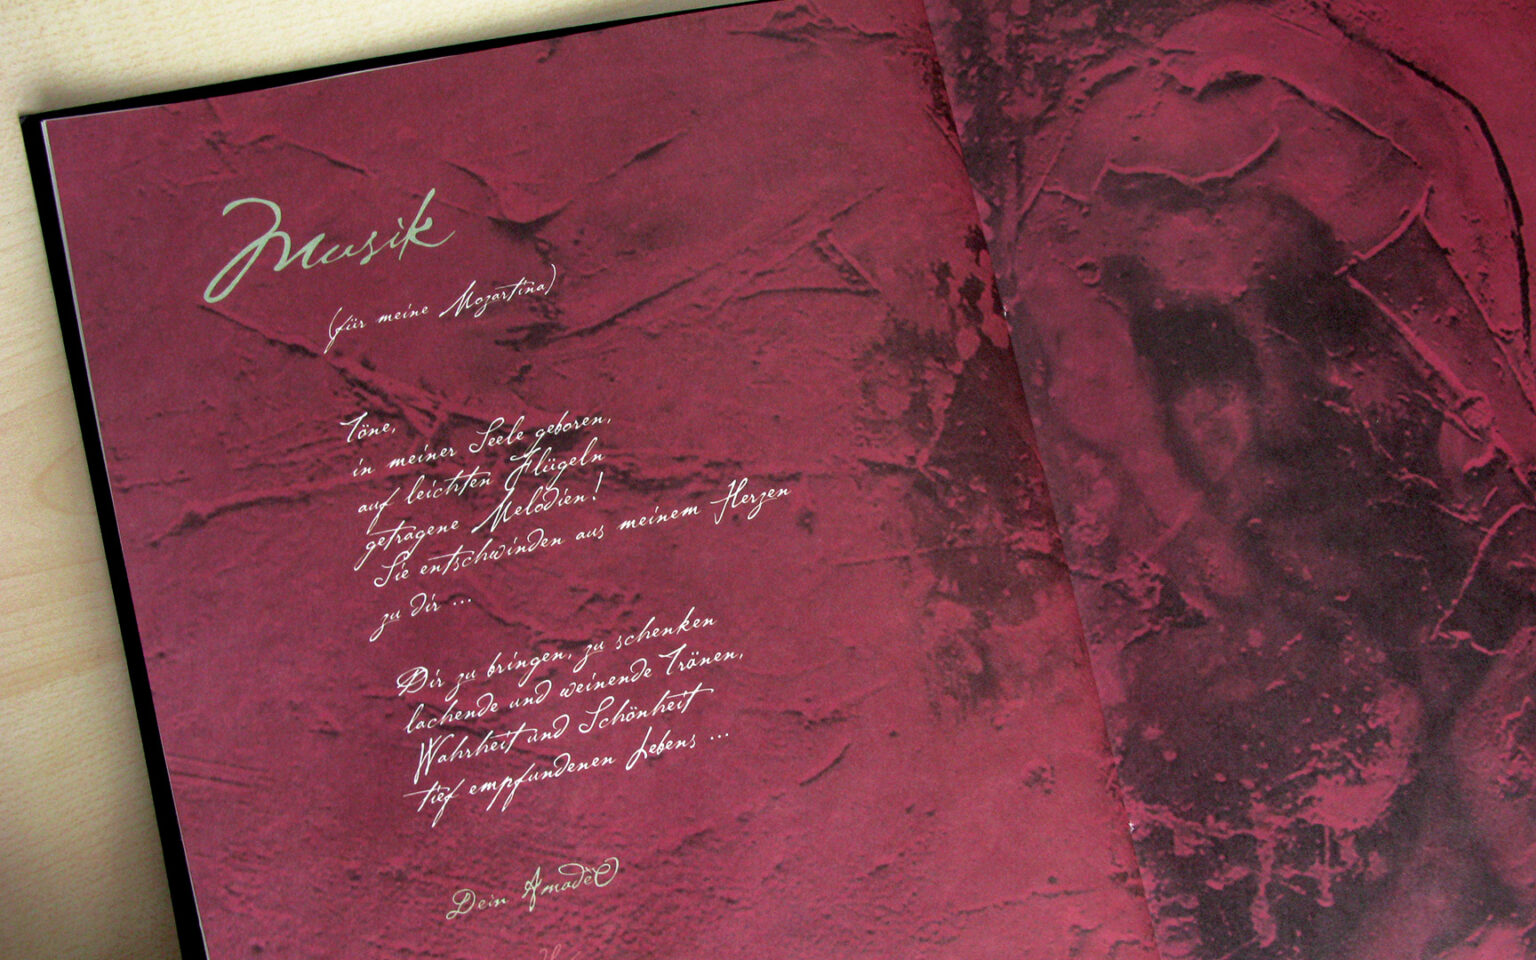 Musik
(für meine Mozartina)
Töne,
in meiner Seele geboren,
auf leichten Flügeln
getragene Melodien!
Sie entschwinden aus meinem Herzen
zu dir ...
Dir zu bringen, zu schenken
lachende und weinende Tränen,
Wahrheit und Schönheit
tief empfundenen Lebens ...
Dein Amadè